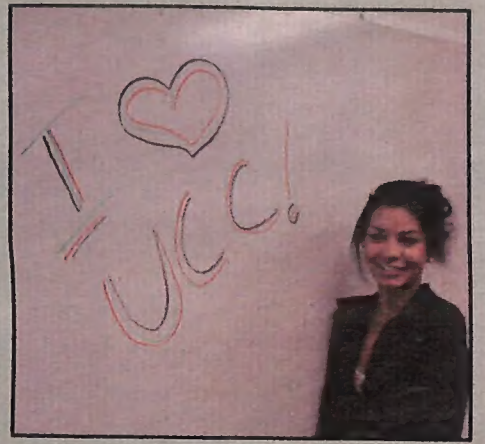 I ♥
UCC!